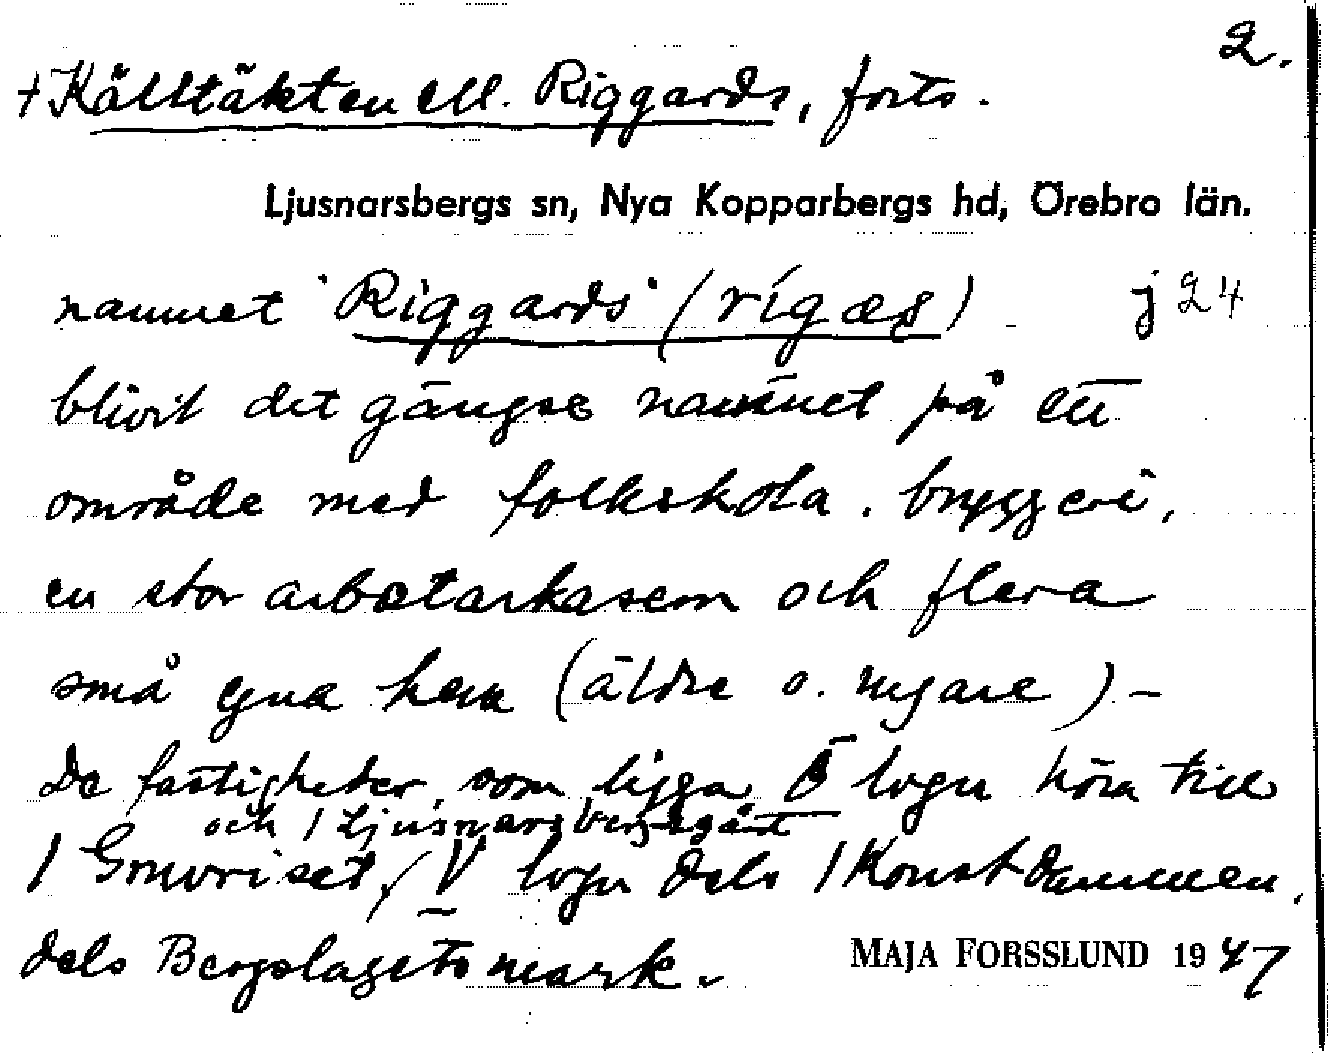 2.
+ Källtäkten ell. Riggards, forts.
Ljusnarsbergs sn, Nya Kopparbergs hd, Örebro län.
namnet "Riggards" (rígæs) j24
blivit det gängse namnet på ett
område med folkskola, bryggeri,
en stor arbetarkasern och flera
små egna hem (äldre o. nyare) –
De fastigheter, som ligga Ö logn höra till
och 1 Ljusnarsbergsgård
1 Gruvriset, V logn dels 1 Konstdammen,
dels Bergslagets mark. –
MAJA FORSSLUND 1947